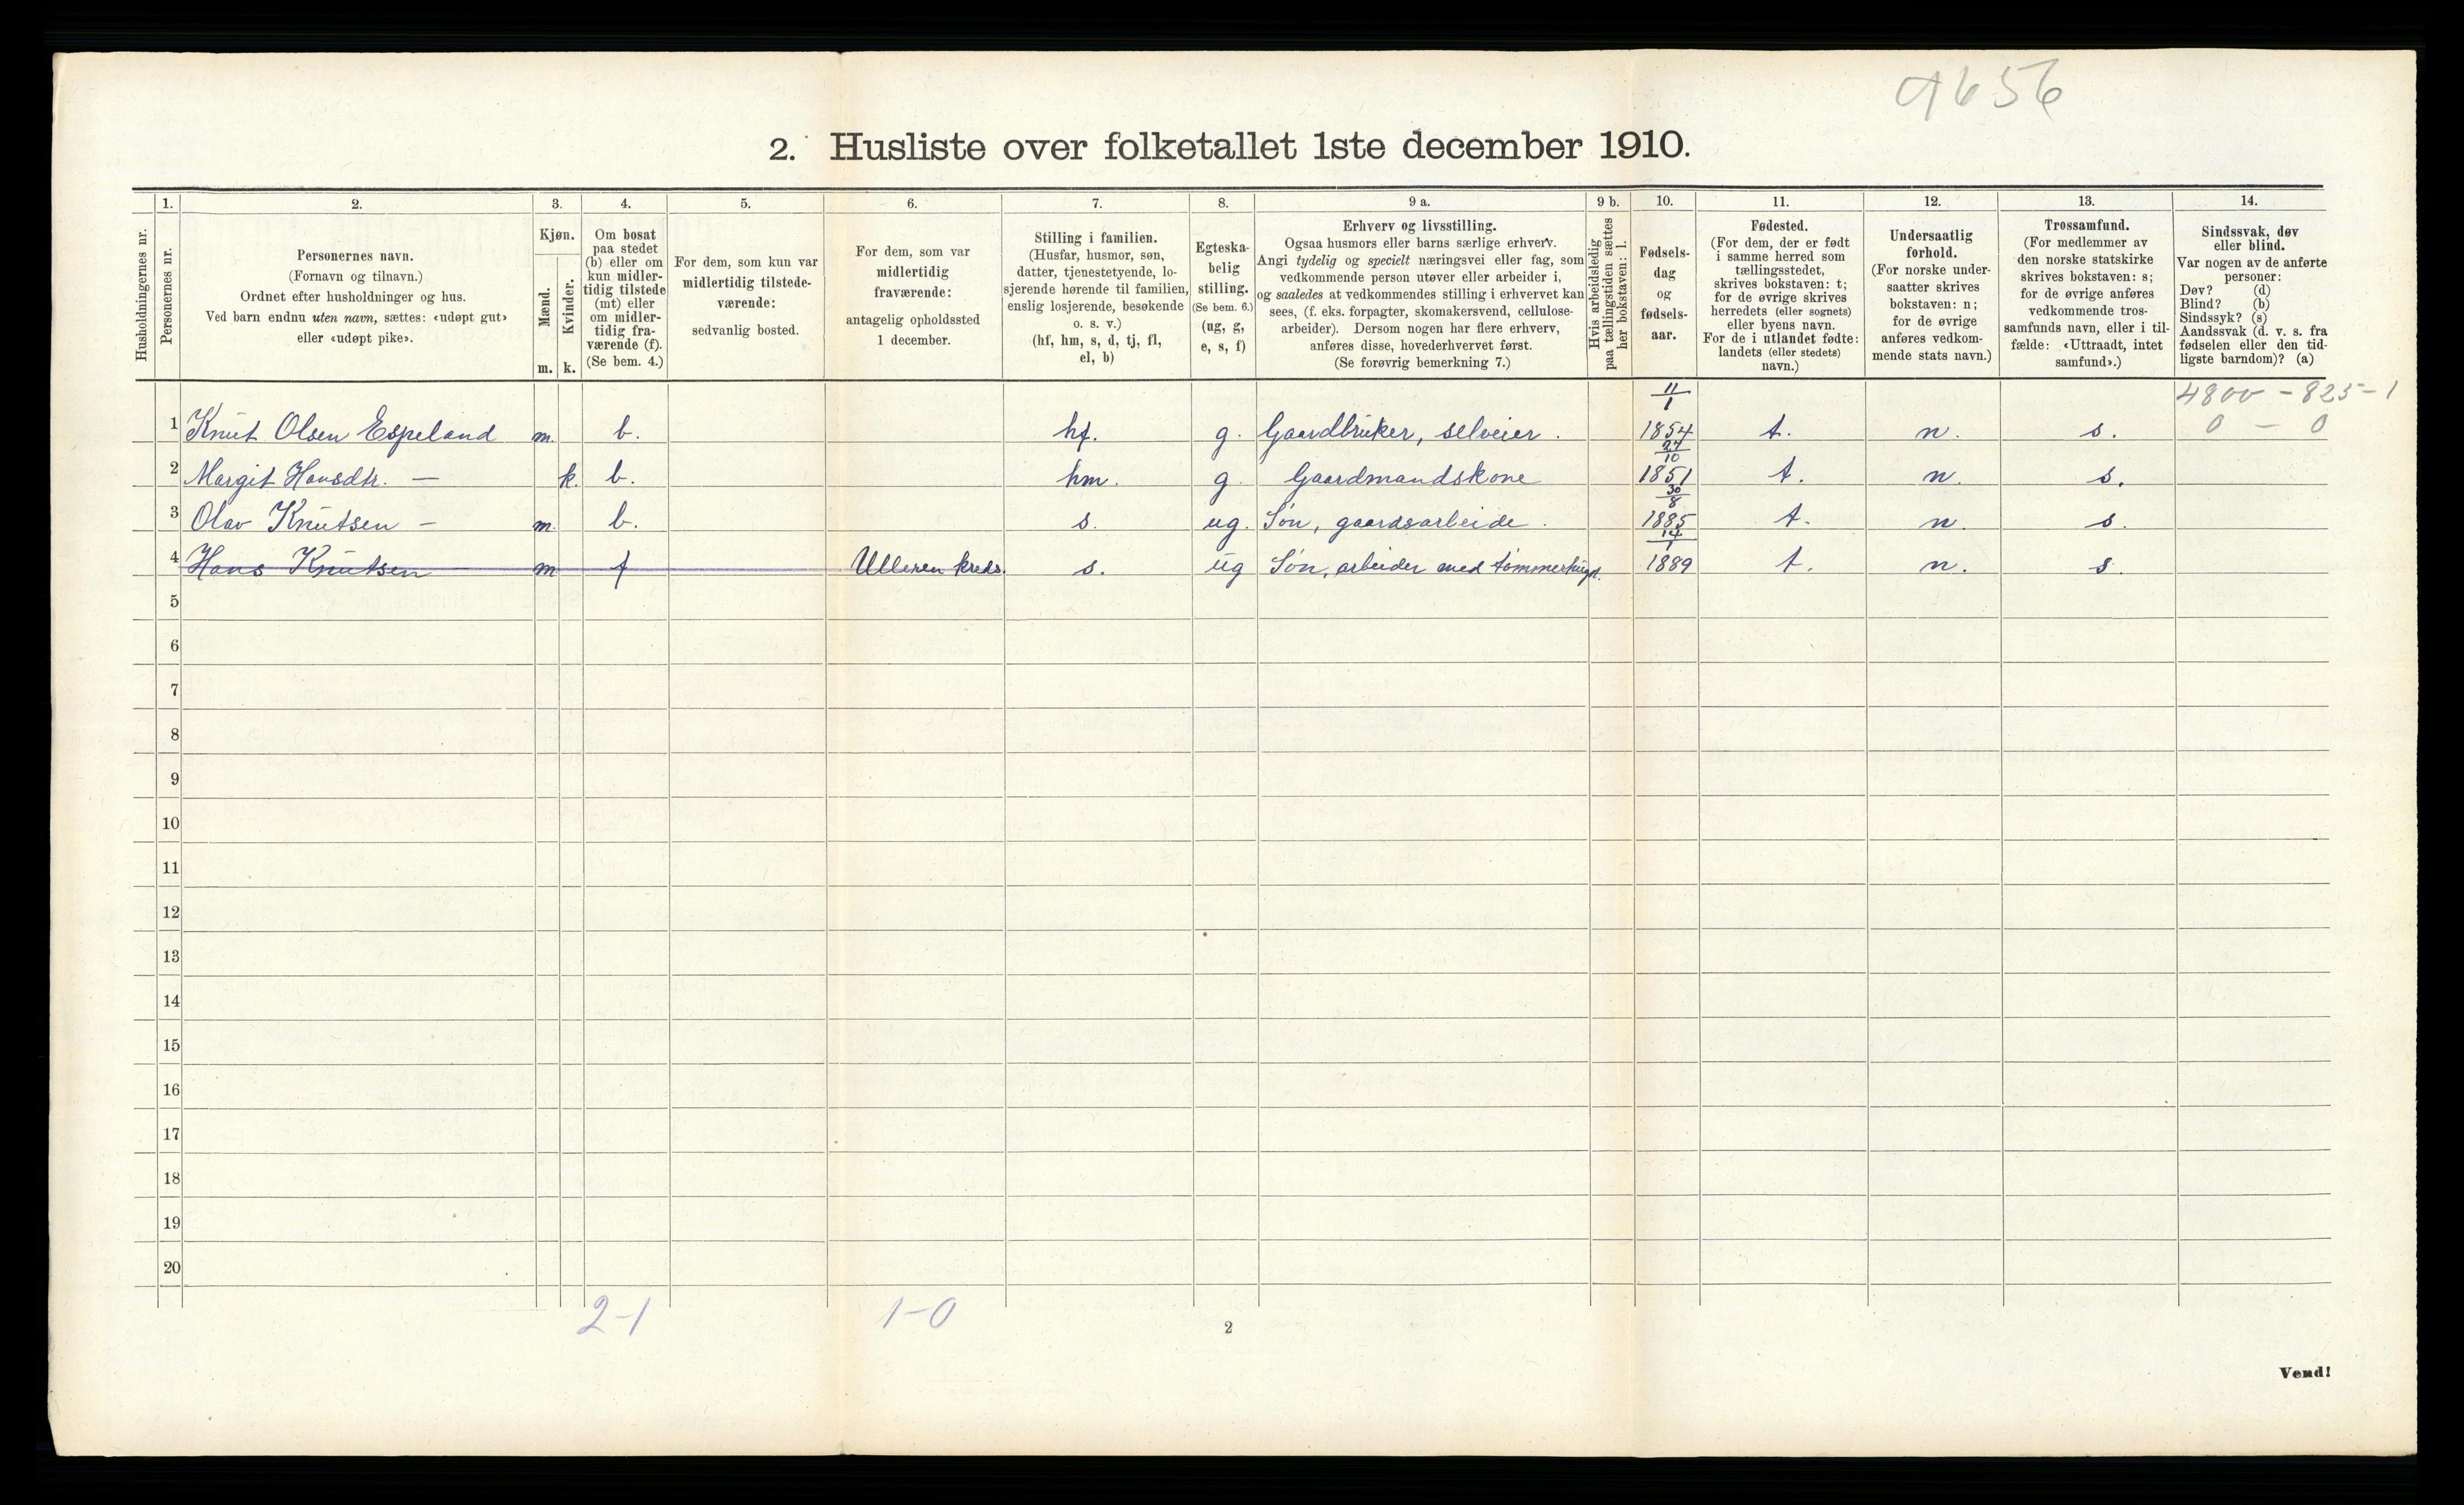 9656
2. Husliste over folketallet 1ste december 1910.
Husholdningernes nr.
1.
Personernes nr.
2.
Personernes navn.
(Fornavn og tilnavn.)
Ordnet efter husholdninger og hus.
Ved barn endnu uten navn, sættes: «udøpt gut»
eller «udøpt pike».
3.
Kjøn.
Mænd.
Kvinder.
m. k.
4.
Om bosat
paa stedet
(b) eller om
kun midler-
tidig tilstede
(mt) eller
om midler-
tidig fra-
værende (f).
(Se bem. 4.)
5.
For dem, som kun var
midlertidig tilstede-
værende:
sedvanlig bosted.
6.
For dem, som var
midlertidig
fraværende:
antagelig opholdssted
1 december.
7.
Stilling i familien.
(Husfar, husmor, søn,
datter, tjenestetyende, lo-
sjerende hørende til familien,
enslig losjerende, besøkende
o. s. v.)
(hf, hm, s, d, tj, fl,
el, b)
8.
Egteska-
belig
stilling.
(Se bem. 6.)
(ug, g,
e, s, f)
9 a.
Erhverv og livsstilling.
Ogsaa husmors eller barns særlige erhverv.
Angi tydelig og specielt næringsvei eller fag, som
vedkommende person utøver eller arbeider i,
og saaledes at vedkommendes stilling i erhvervet kan
sees, (f. eks. forpagter, skomakersvend, cellulose-
arbeider). Dersom nogen har flere erhverv,
anføres disse, hovederhvervet først.
(Se forøvrig bemerkning 7.)
9 b.
Hvis arbeidsledig
paa tællingstiden sættes
her bokstaven: l.
10.
Fødsels-
dag
og
fødsels-
aar.
11.
Fødested.
(For dem, der er født
i samme herred som
tællingsstedet,
skrives bokstaven: t;
for de øvrige skrives
herredets (eller sognets)
eller byens navn.
For de i utlandet fødte:
landets (eller stedets)
navn.)
12.
Undersaatlig
forhold.
(For norske under-
saatter skrives
bokstaven: n;
for de øvrige
anføres vedkom-
mende stats navn.)
13.
Trossamfund.
(For medlemmer av
den norske statskirke
skrives bokstaven: s;
for de øvrige anføres
vedkommende tros-
samfunds navn, eller i til-
fælde: «Uttraadt, intet
samfund».)
14.
Sindssvak, døv
eller blind.
Var nogen av de anførte
personer:
Døv? (d)
Blind? (b)
Sindssyk? (s)
Aandssvak (d. v. s. fra
fødselen eller den tid-
ligste barndom)? (a)
4800 - 825 - 1
0 - 0
1 Knut Olsen Espeland m. b. hf. g. Gaardbruker, selveier. 11/1 1854 t. n. s.
2 Margit Hansdtr. — k. b. hm. g. Gaardmandskone 27/10 1851 t. n. s.
3 Olav Knutsen — m. b. s. ug. Søn, gaardsarbeide. 30/8 1885 t. n. s.
4 Hans Knutsen — m f Ulleren kreds. s. ug Søn, arbeider med tømmerhugst. 14/1 1889 t. n. s.
5
6
7
8
9
10
11
12
13
14
15
16
17
18
19
20
2-1
1-0
2
Vend!